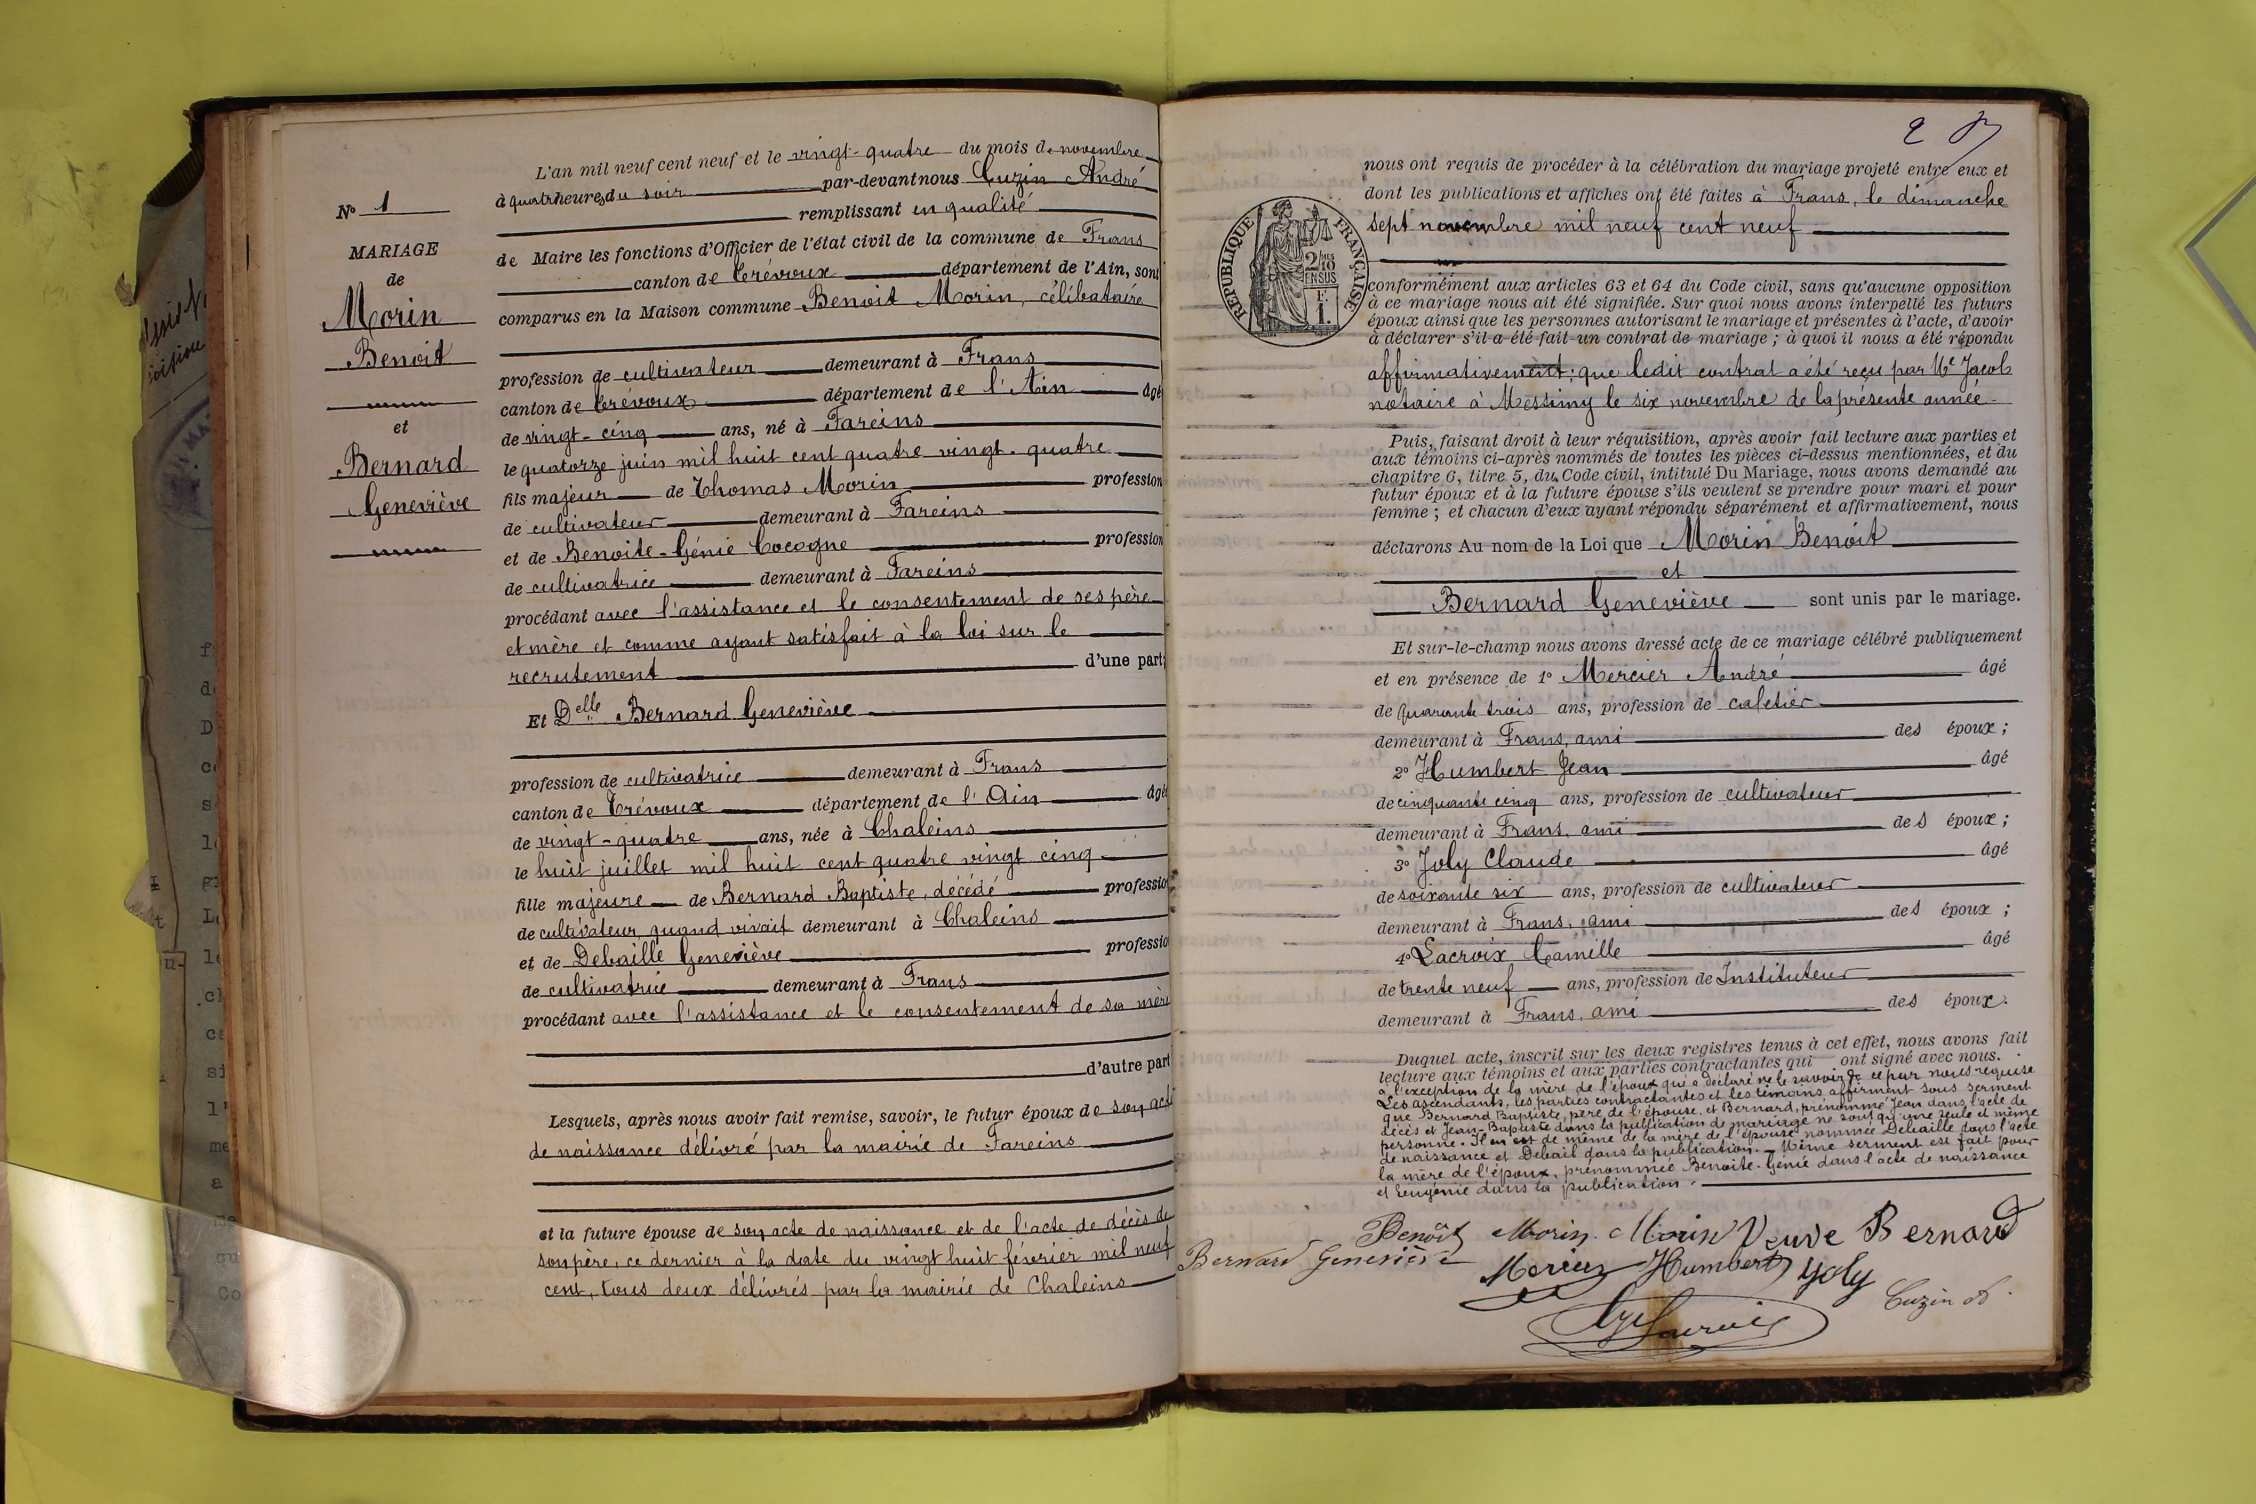 N° 1
MARIAGE
de
Morin
Benoit
et
Bernard
Geneviève
L'an mil neuf cent neuf et le vingt-quatre du mois de novembre
à quatre heures du soir par-devant nous Cuzin André
remplissant en qualité
de Maire les fonctions d'Officier de l'état civil de la commune de Frans
canton de Trévoux département de l'Ain, sont
comparus en la Maison commune Benoit Morin, célibataire
profession de cultivateur demeurant à Frans
canton de Trévoux département de l'Ain âgé
de vingt-cinq ans, né à Fareins
le quatorze juin mil huit cent quatre vingt-quatre
fils majeur de Thomas Morin profession
de cultivateur demeurant à Fareins
et de Benoite-Génie Cocogne profession
de cultivatrice demeurant à Fareins
procédant avec l'assistance et le consentement de ses père
et mère et comme ayant satisfait à la loi sur le
recrutement d'une part;
Et Delle Bernard Geneviève
profession de cultivatrice demeurant à Frans
canton de Trévoux département de l'Ain âgée
de vingt-quatre ans, née à Chaleins
le huit juillet mil huit cent quatre vingt cinq
fille majeure de Bernard Baptiste, décédé profession
de cultivateur quand vivait demeurant à Chaleins
et de Debaille Geneviève profession
de cultivatrice demeurant à Frans
procédant avec l'assistance et le consentement de sa mère
d'autre part
Lesquels, après nous avoir fait remise, savoir, le futur époux de son acte
de naissance délivré par la mairie de Fareins
et la future épouse de son acte de naissance et de l'acte de décès de
son père, ce dernier à la date du vingt huit février mil neuf
cent, tous deux délivrés par la mairie de Chaleins
2
RÉPUBLIQUE FRANÇAISE
2/10
EN SUS
1 F.
nous ont requis de procéder à la célébration du mariage projeté entre eux et
dont les publications et affiches ont été faites à Frans, le dimanche
sept novembre mil neuf cent neuf
conformément aux articles 63 et 64 du Code civil, sans qu'aucune opposition
à ce mariage nous ait été signifiée. Sur quoi nous avons interpellé les futurs
époux ainsi que les personnes autorisant le mariage et présentes à l'acte, d'avoir
à déclarer s'il a été fait un contrat de mariage ; à quoi il nous a été répondu
affirmativement; que ledit contrat a été reçu par Me Jacob
notaire à Messimy le six novembre de la présente année.
Puis, faisant droit à leur réquisition, après avoir fait lecture aux parties et
aux témoins ci-après nommés de toutes les pièces ci-dessus mentionnées, et du
chapitre 6, titre 5, du Code civil, intitulé Du Mariage, nous avons demandé au
futur époux et à la future épouse s'ils veulent se prendre pour mari et pour
femme ; et chacun d'eux ayant répondu séparément et affirmativement, nous
déclarons Au nom de la Loi que Morin Benoit
et
Bernard Geneviève sont unis par le mariage.
Et sur-le-champ nous avons dressé acte de ce mariage célébré publiquement
et en présence de 1° Mercier André âgé
de quarante trois ans, profession de cafetier
demeurant à Frans, ami des époux ;
2° Humbert Jean âgé
de cinquante cinq ans, profession de cultivateur
demeurant à Frans, ami des époux ;
3° Joly Claude âgé
de soixante six ans, profession de cultivateur
demeurant à Frans, ami des époux ;
4° Lacroix Camille âgé
de trente neuf ans, profession de Instituteur
demeurant à Frans, ami des époux.
Duquel acte, inscrit sur les deux registres tenus à cet effet, nous avons fait
lecture aux témoins et aux parties contractantes qui ont signé avec nous.
à l'exception de la mère de l'époux qui a déclaré ne le savoir de ce par nous requise
Les ascendants, les parties contractantes et les témoins affirment sous serment
que Bernard Baptiste, père de l'épouse, et Bernard, prénommé Jean dans l'acte de
décès et Jean-Baptiste dans la publication de mariage ne sont qu'une seule et même
personne. Il en est de même de la mère de l'épouse nommée Debaille dans l'acte
de naissance et Debail dans la publication. Même serment est fait pour
la mère de l'époux, prénommée Benoite-Génie dans l'acte de naissance
et Eugénie dans la publication.
Benoît Morin Morin Veuve Bernard
Bernard Geneviève Mercier Humbert Joly
Cuzin A.
Lacroix